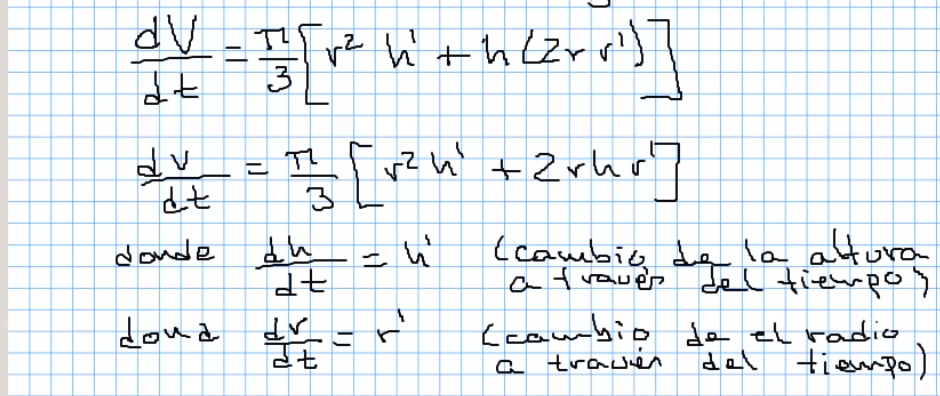 dV/dt = π/3 [r² h' + h(2r r')]
dv/dt = π/3 [r² h' + 2rhr']
donde dh/dt = h' (cambio de la altura
a través del tiempo)
dond dr/dt = r' (cambio de el radio
a través del tiempo)